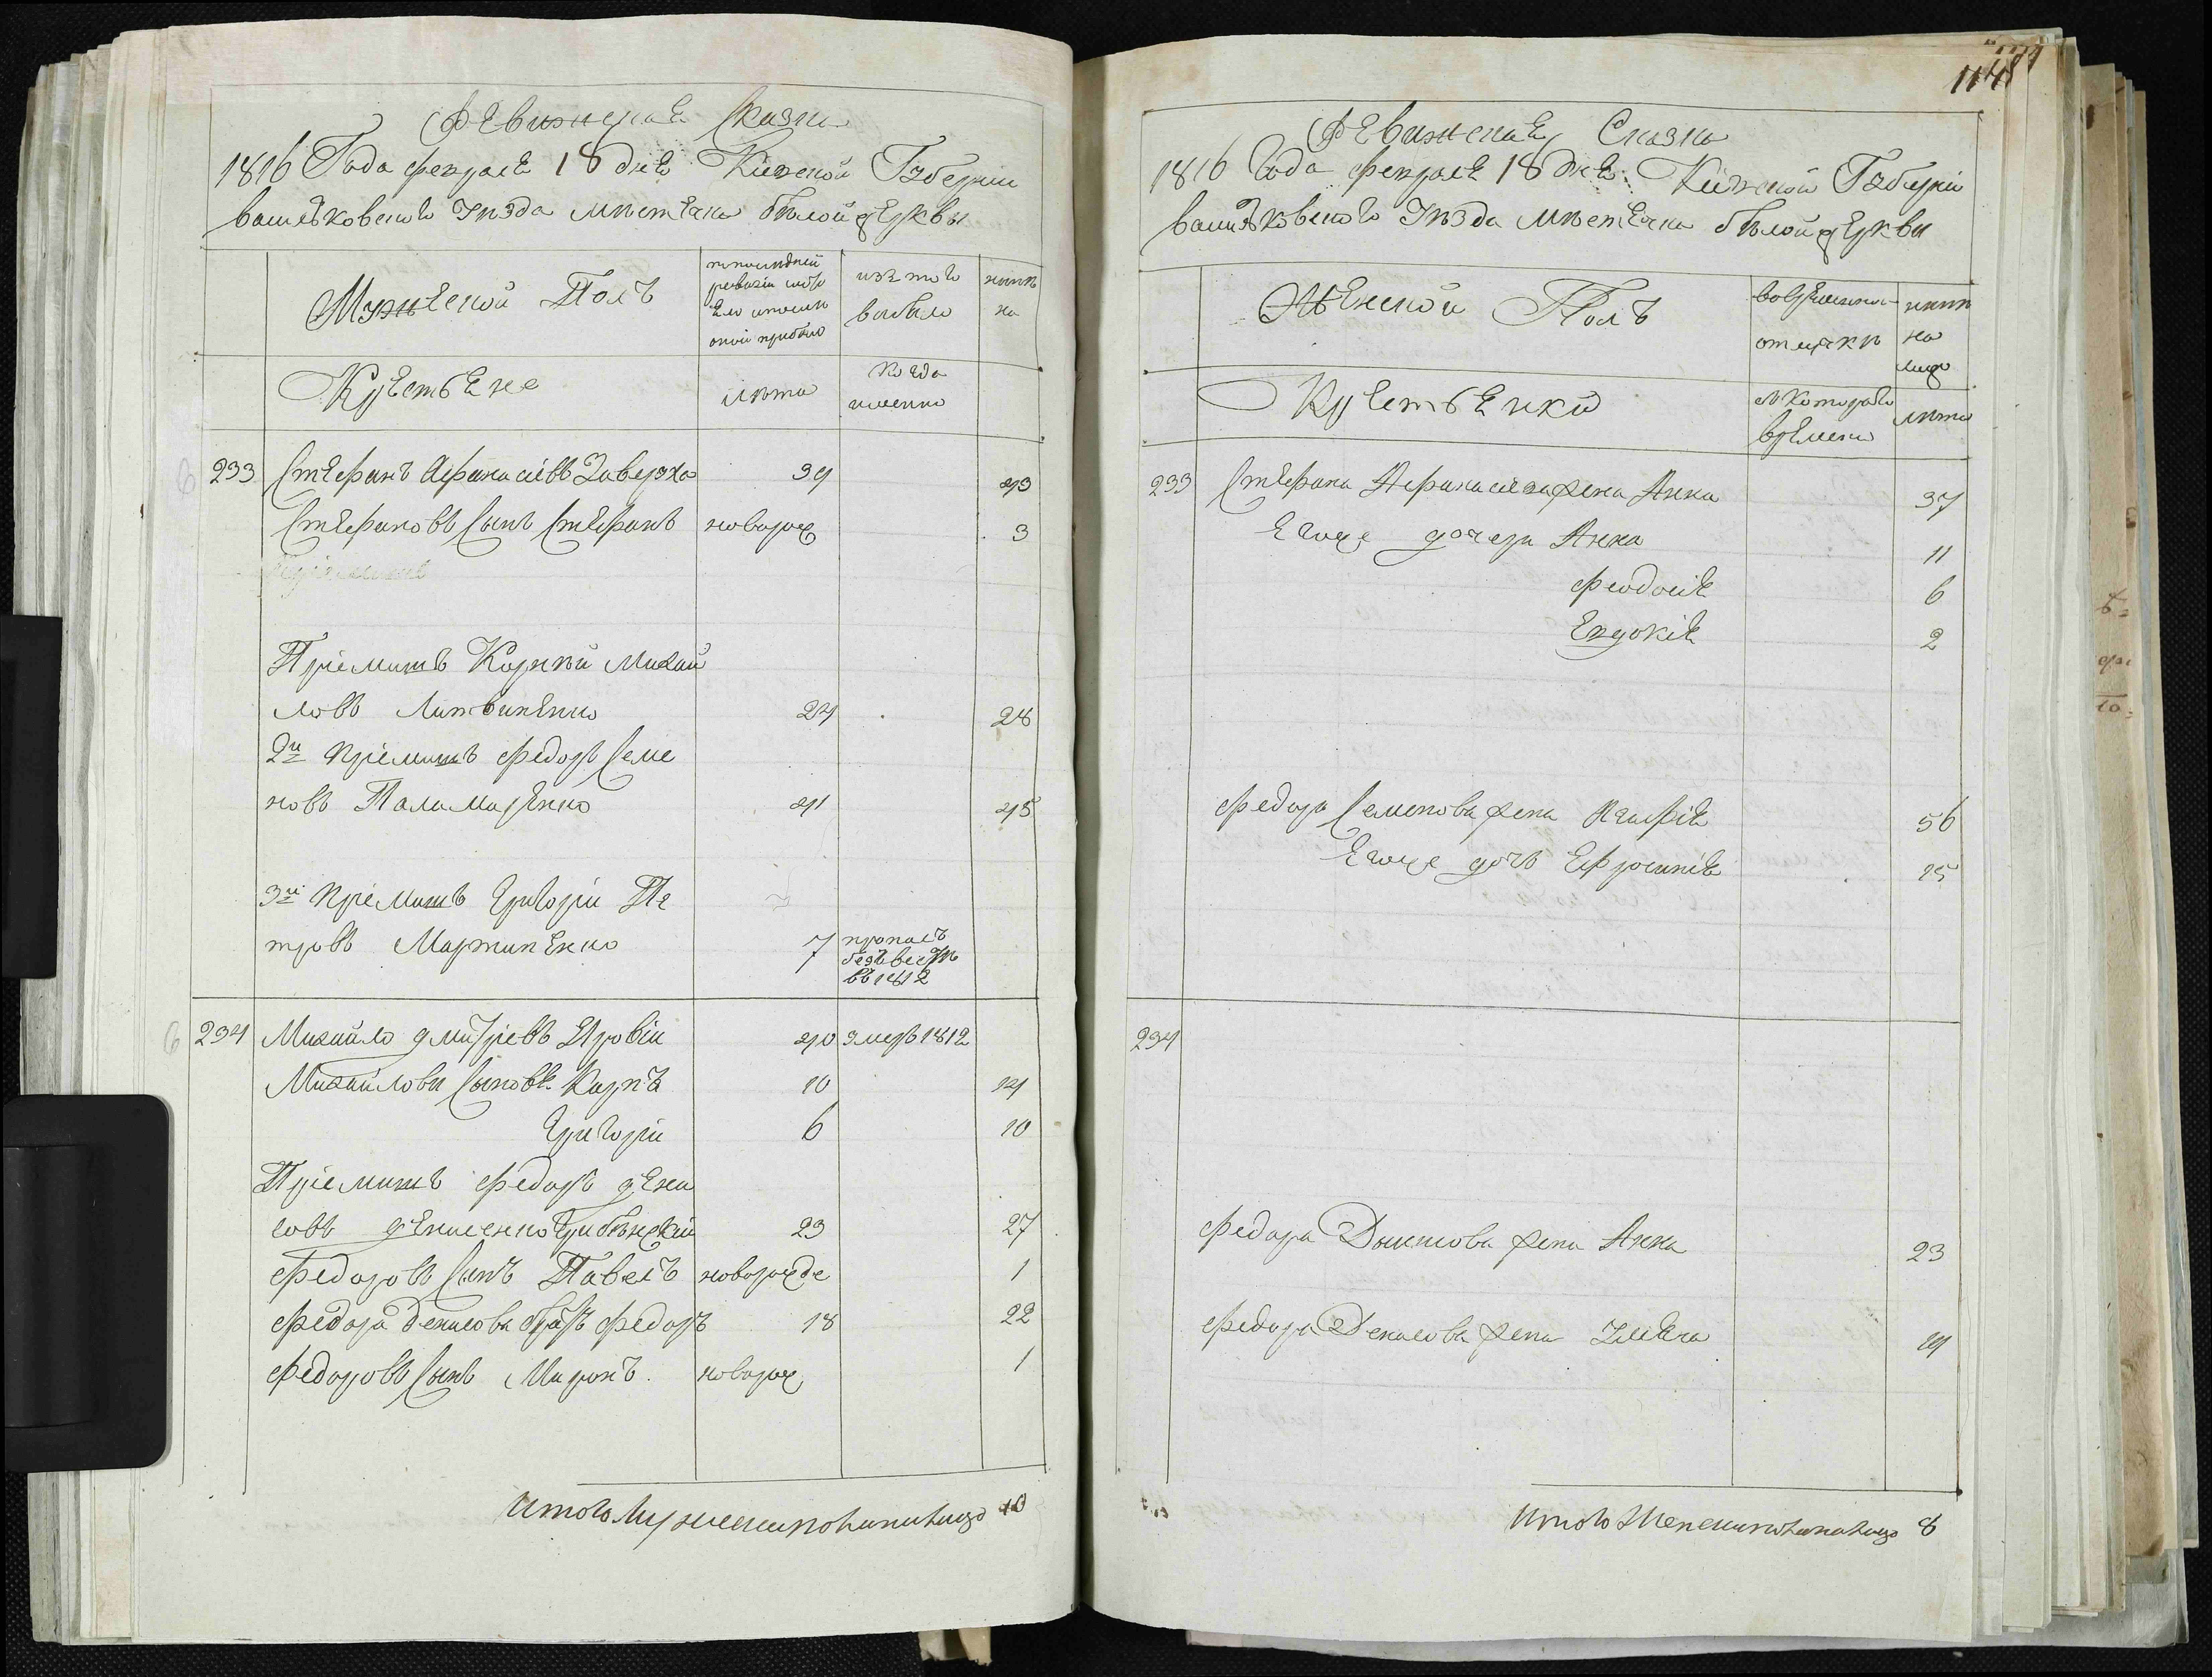 Ревижская Сказка
1816 Года февраля 18 дня Киевской Губернии
васильковского уезда местечка белой церквы
Мужеской Полъ
по последней ревизии состояло и после оной прибыло
изъ того выбыло
ныне на
Крестьяне
лета
когда именно
233 Стефанъ Афанасіевъ Заверуха 39 43
Стефановъ Сынъ Стефанъ новорож 3
Пріемишъ Корней Михай
ловъ Литвиненко 24 28
2й пріемишъ федоръ Семе
новъ Паламаренко 41 45
3й пріемишъ Григорій Пе
тровъ Мартиненко 7 пропалъ безъ вести въ 1812
234 Михайло дмитріевъ Яровій 40 умеръ 1812
Михайловы Сыновья Карпъ 10 14
Григорій 6 10
Пріемишъ федоръ дени
совъ денисенко 23 27
федоровъ Сынъ Павелъ новорожде 1
федора денисова братъ федоръ 18 22
федоровъ Сынъ Миронъ новорож 1
Итого мужеска пола на лицо 10
1141
Ревижская Сказка
1816 Года февраля 18 дня Киевской Губерніи
васильковского уезда местечка белой церкви
Женской Полъ
во временной отлучки
ныне на лицо
Крестьянки
съ которого времени
лета
233 Стефана Афанасіева жена Анна 37
Егоже дочери Анна 11
феодосія 6
Евдокія 2
федора Семенова жена Агафія 56
Егоже дочь Ефросинія 15
234
федора Денисова жена Анна 23
федора Денисова жена 19
Итого Женска пола на лицо 8